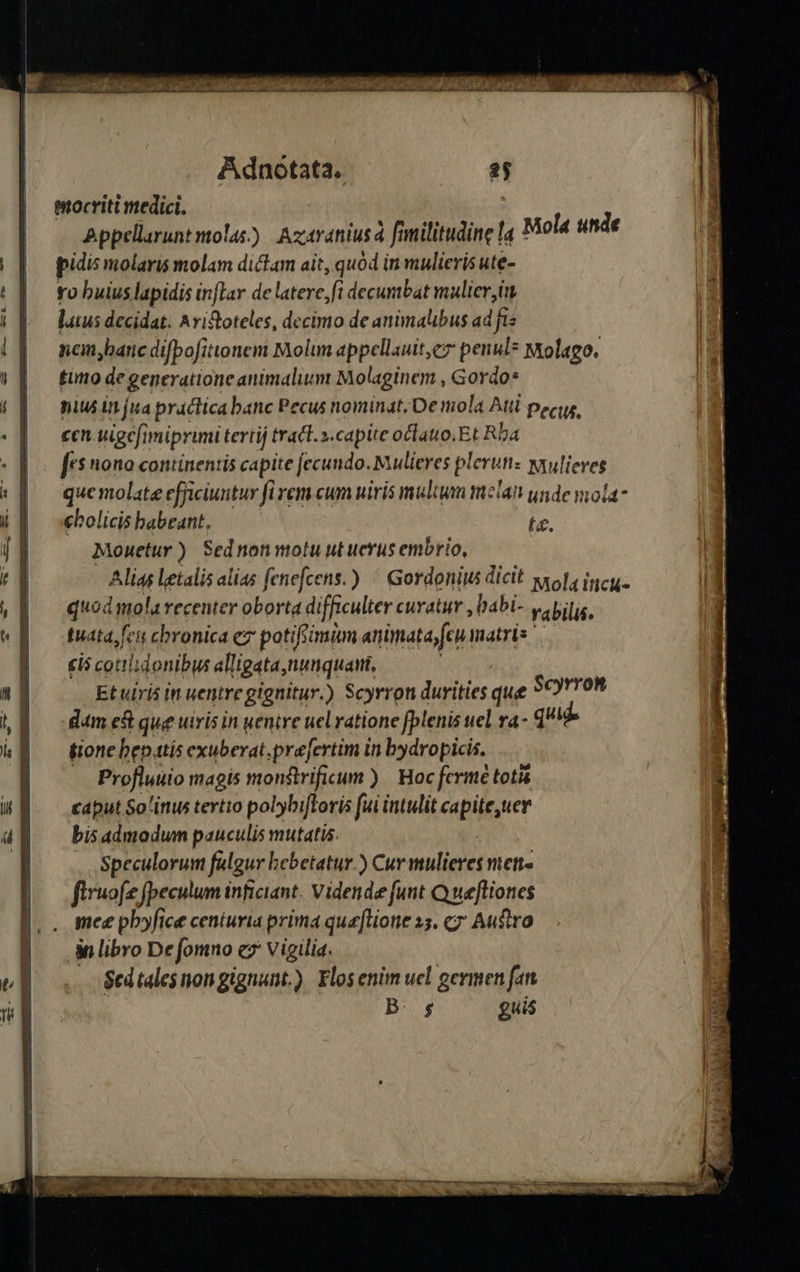 Adnotata. 25
mocriti medici.
Appellarunt molas.) Azaranius à similitudine la Mola unde
pidis molaris molam dictam ait, quòd in mulieris ute-
ro huius lapidis instar de latere, si decumbat mulier, in
latus decidat. Aristoteles, decimo de animalibus ad fi=
nem, hanc dispositionem Molim appellauit, et penul= Molago.
timo de generatione animalium Molaginem, Gordo=
nius in sua practica hanc Pecus nominat. De mola Aui Pecus.
cen. uigesimiprimi tertij tract. 2. capite octauo. Et Rha
ses nono continentis capite secundo. Mulieres plerun= Mulieres
que molatæ efficiuntur si rem cum uiris multum melan unde mola=
cholicis habeant. tæ.
Mouetur) Sed non motu ut uerus embrio,
Alias letalis alias senescens.) Gordonius dicit Mola incu-
quod mola recenter oborta difficulter curatur, habi- rabilis.
tuata, seu chronica et potissimùm animata, seu matri=
cis cotilidonibus alligata, nunquam.
Et uiris in uentre gignitur.) Scyrron durities quæ Scyrron
dam est quæ uiris in uentre uel ratione splenis uel ra- quid.
tione hepatis exuberat, præsertim in hydropicis.
Profluuio magis monstrificum) Hoc fermè totũ
caput Solinus tertio polyhistoris sui intulit capite, uer
bis admodum pauculis mutatis.
Speculorum fulgur hebetatur.) Cur mulieres men-
struosæ speculum inficiant. Videndæ sunt Quæstiones
meæ physicæ centuria prima quæstione 23. et Austro
in libro De somno et Vigilia.
Sed tales non gignunt.) Flos enim uel germen san
B 5 guis